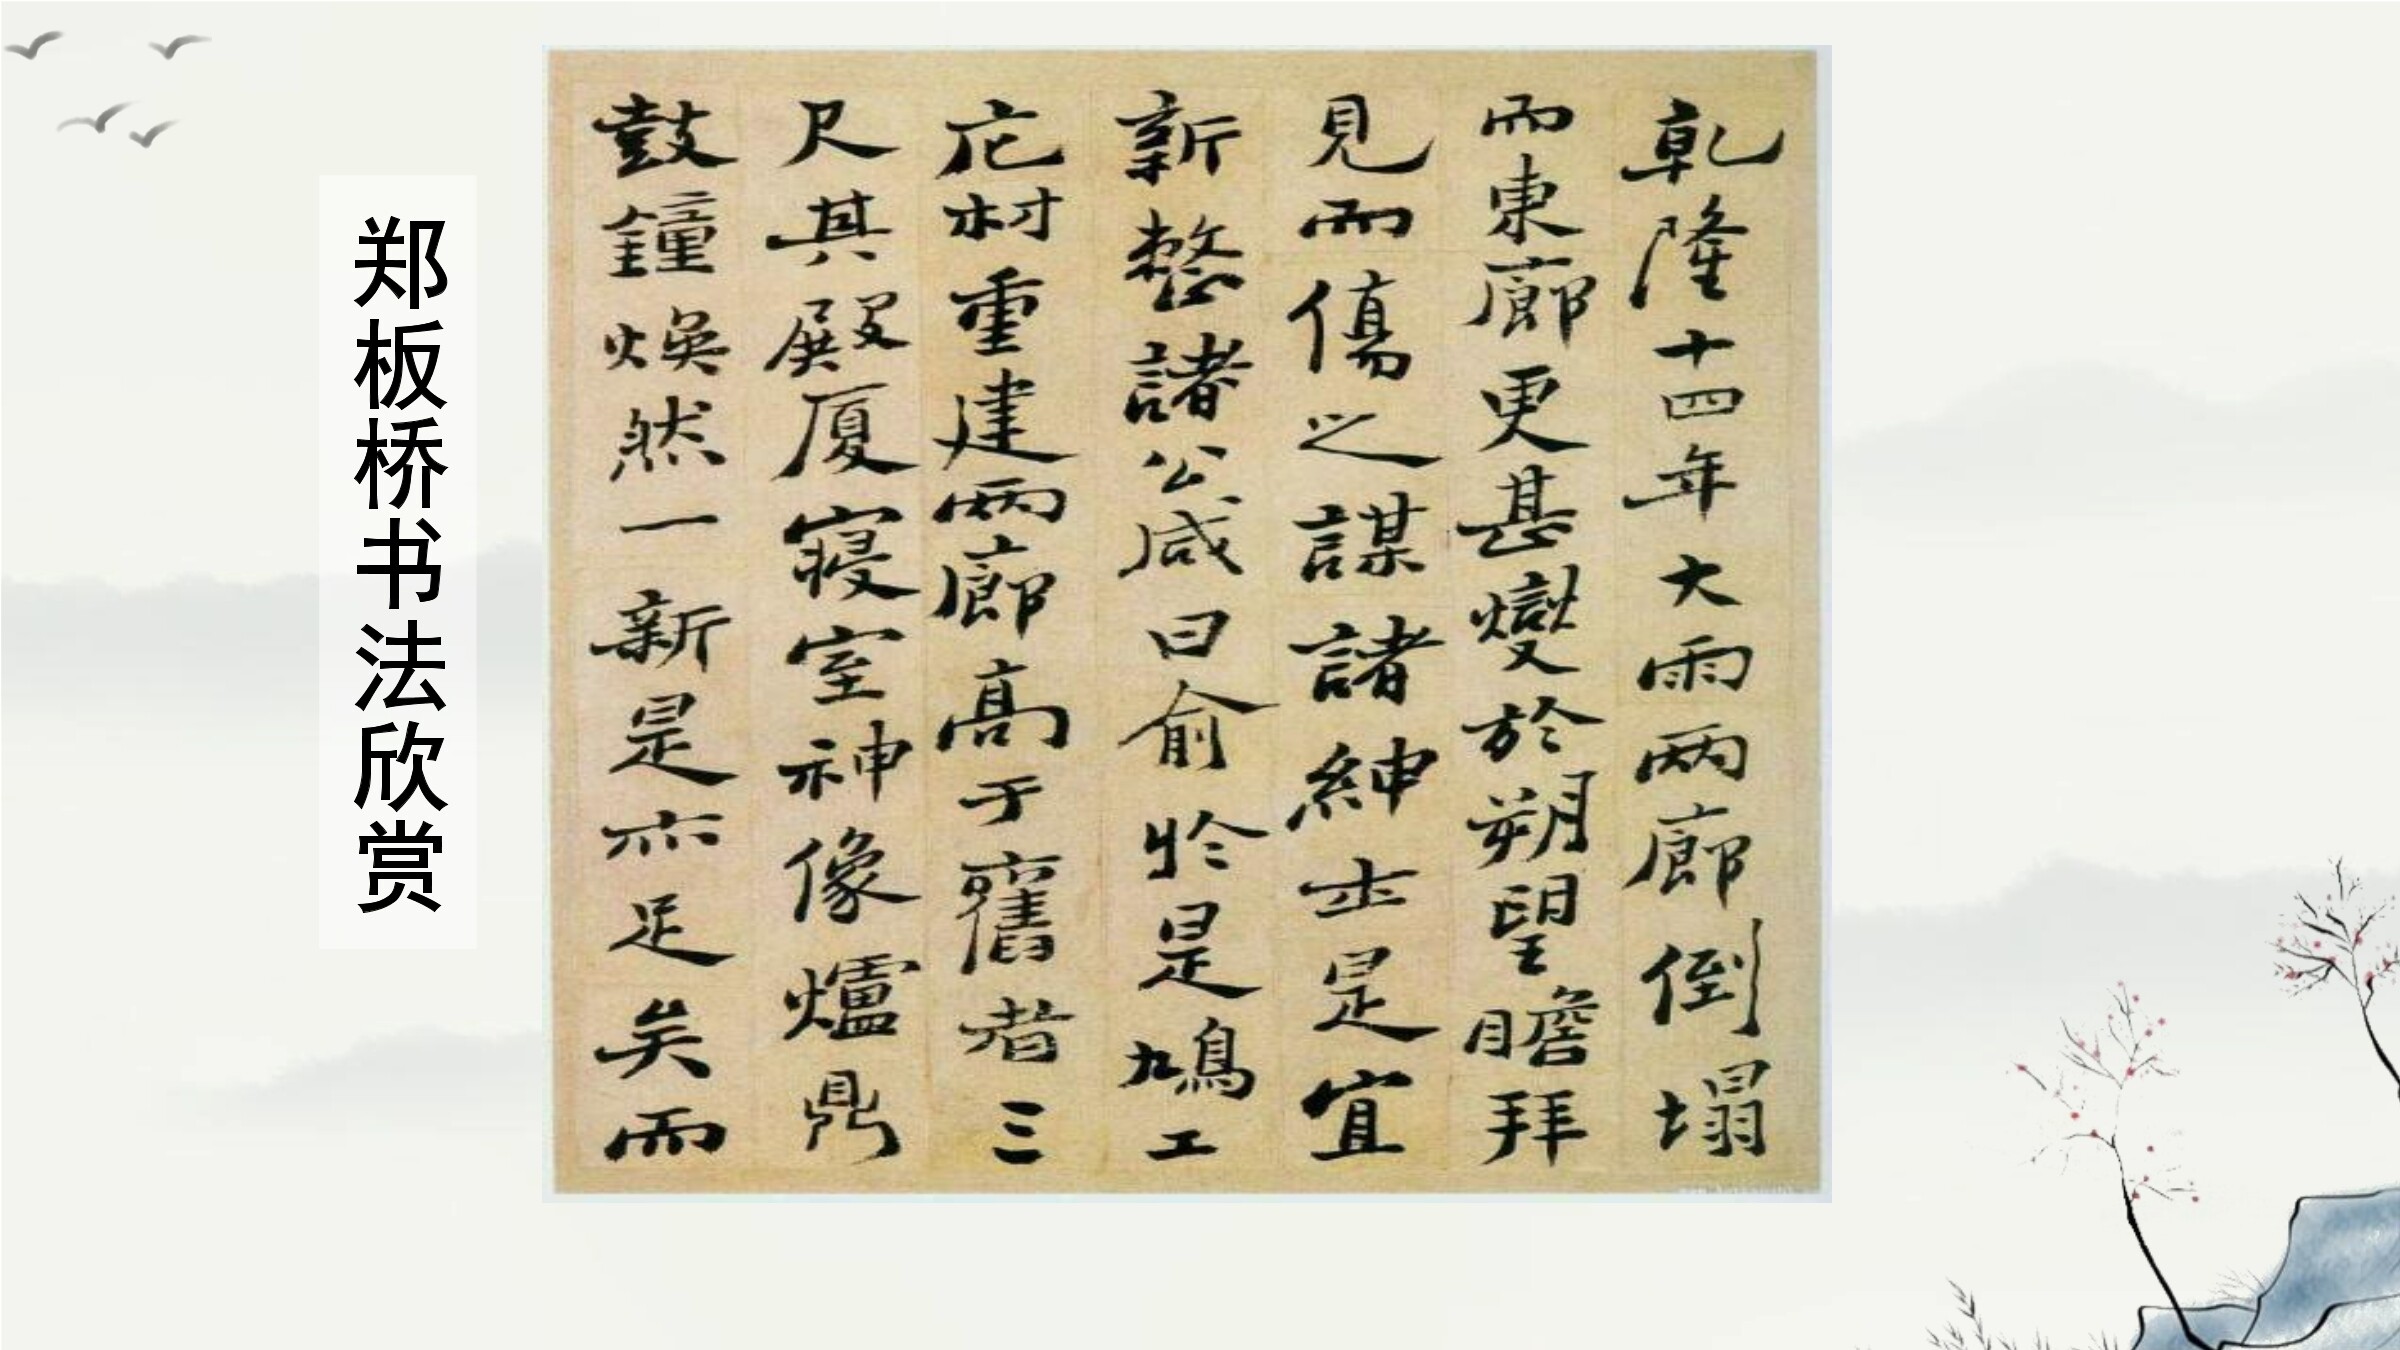 郑板桥书法欣赏
乾隆十四年大雨兩廊倒塌
而東廊更甚變於朔望瞻拜
見而傷之謀諸紳士是宜
新整諸公咸曰俞於是鳩工
庀材重建兩廊高于舊者三
尺其殿厦寢室神像爐鼎
鼓鐘煥然一新是亦足矣而